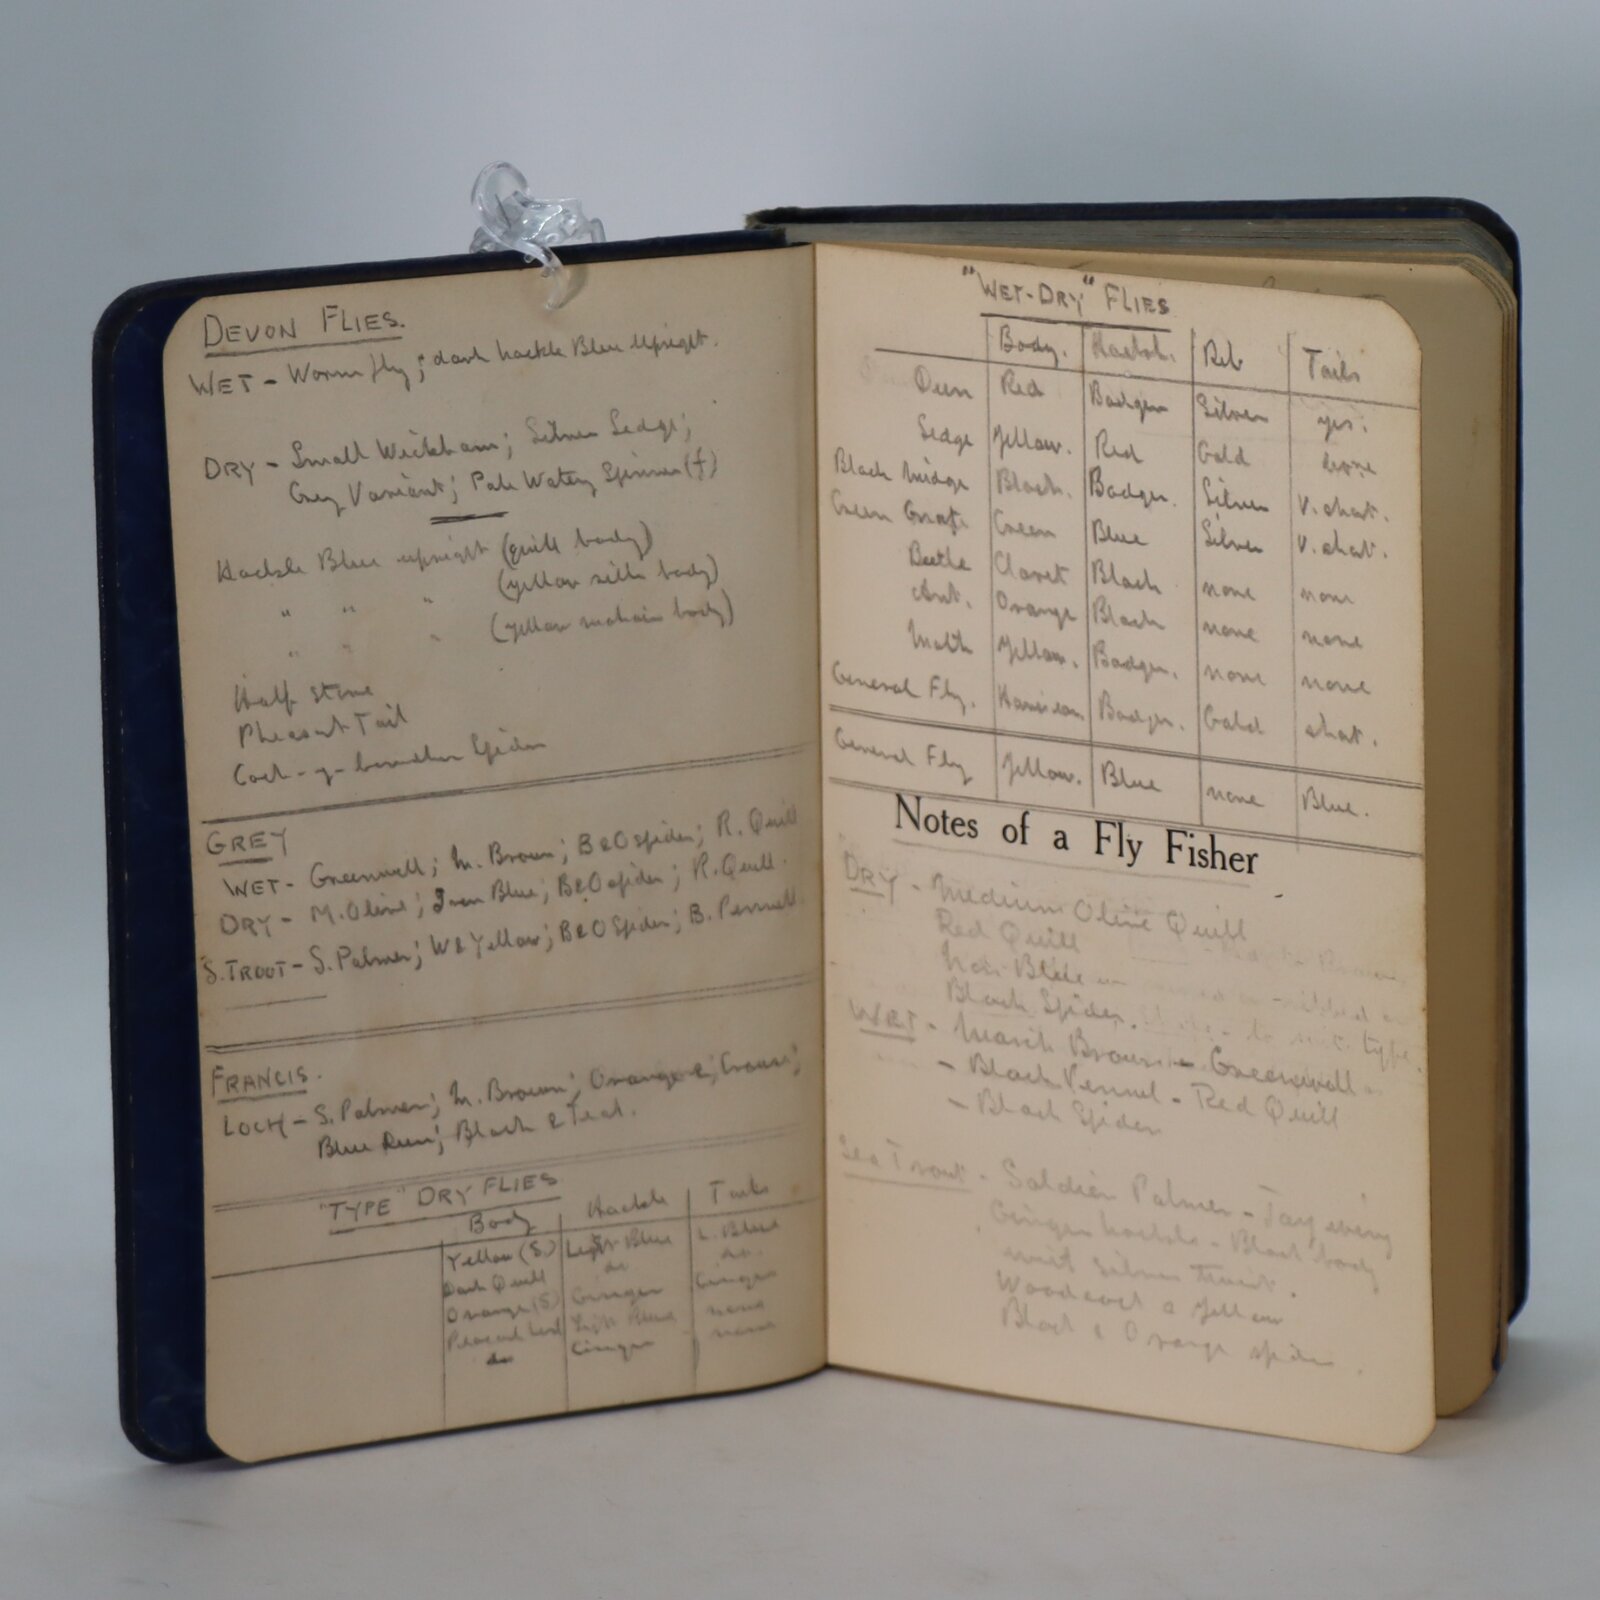 DEVON FLIES.
WET - Worm fly; dark hackle Blue Upright.
DRY - Small Wickham; Silver Sedge;
Grey Variant; Pale Watery Spinner (f)
Hackle Blue upright (quill body)
" " " (yellow silk body)
" " " (yellow mohair body)
Half stone
Pheasant Tail
Coch-y-bonddhu Spider
GREY
WET - Greenwell; M. Brown; B & O spider; R. Quill
DRY - M. Olive; Iron Blue; B & O spider; R. Quill.
S. TROUT - S. Palmer; W & Yellow; B & O Spider; B. Pennell
FRANCIS.
LOCH - S. Palmer; M. Brown; Orange &; Grouse;
Blue Dun; Black & Teal.
"TYPE" DRY FLIES
Body Hackle Tails
Yellow (S.) Light Blue L. Blue
Dark Quill do do.
Orange (S) Ginger Ginger
Peacock herl Light Blue none
do Ginger none
"WET-DRY" FLIES
Body. Hackle. Rib Tails
Dun Red Badger Silver yes.
Sedge Yellow. Red Gold none
Black Midge Black. Badger. Silver V. short.
Green Gnat Green Blue Silver V. short.
Beetle Claret Black none none
Ant. Orange Black none none
Moth Yellow. Badger. none none
General Fly. Badger. Gold short.
General Fly Yellow. Blue none Blue.
Notes of a Fly Fisher
DRY - Medium Olive Quill
Red Quill
Iron Blue
Black Spider.
WET - March Brown - Greenwell
- Black Pennel - Red Quill
- Black Spider
Sea Trout - Soldier Palmer -
Ginger hackle - Black body
with silver twist.
Woodcock & Yellow
Black & Orange spider.